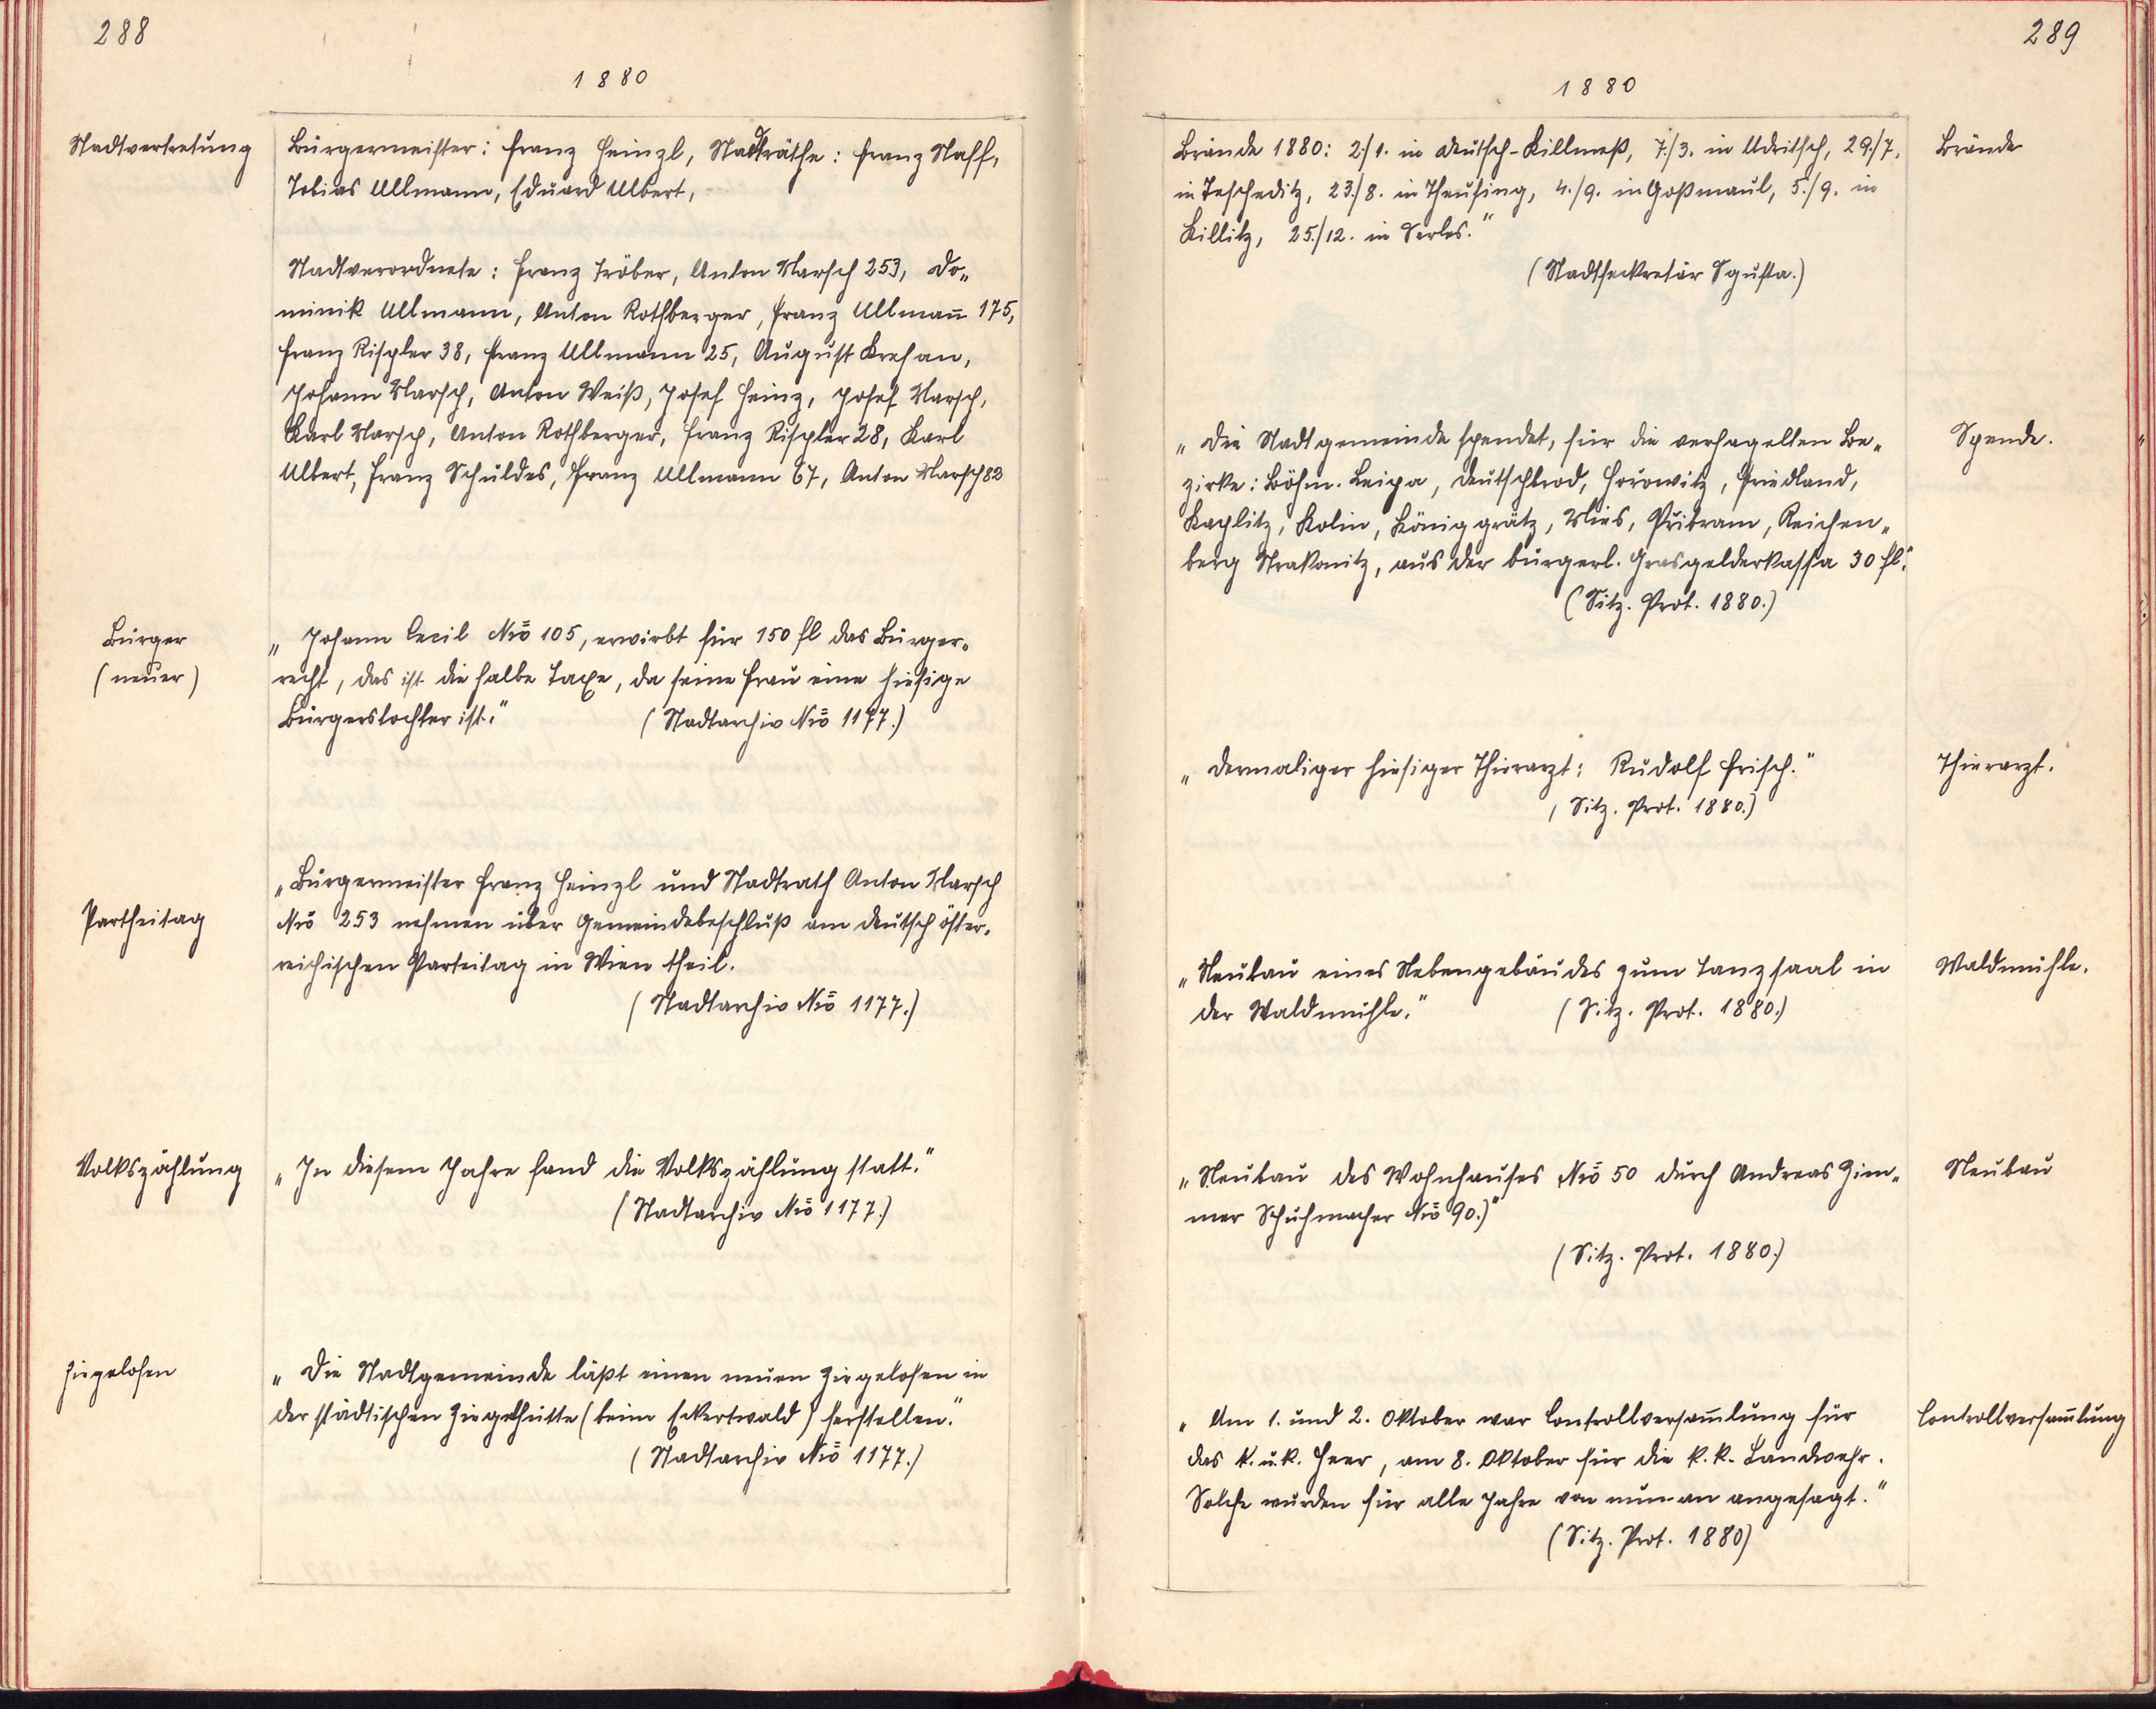 288
1880
Stadtvertretung
Bürgermeister: Franz Heinzl, Stadträthe: Franz Staff,
Tobias Ullmann, Eduard Ulbert,
Stadtverordnete: Franz Tröber, Anton Marsch 253, Do„
minik Ullmann, Anton Rothberger, Franz Ullmañ 175,
Franz Rischler 38, Franz Ullmann 25, August Krehan,
Johann Marsch, Anton Weiß, Josef Heinz, Josef Marsch,
Karl Marsch, Anton Rothberger, Franz Rischler 28, Karl
Ulbert, Franz Schuldes, Franz Ullmann 67, Anton Marsch 82
Bürger
(neuer)
„Johann Cecil Nro 105, erwirbt für 150 fl das Bürger„
recht, das ist die halbe Taxe, da seine Frau eine hiesige
Bürgerstochter ist.“ (Stadtarchiv Nro 1177.)
Partheitag
„Bürgermeister Franz Heinzl und Stadtrath Anton Marsch
Nro 253 nehmen über Gemeindebeschluß am deutsch öster„
reichischen Parteitag in Wien theil.
(Stadtarchiv Nro 1177.)
Volkszählung
„In diesem Jahre fand die Volkszählung statt.“
(Stadtarchiv Nro 1177.)
Ziegelofen
„Die Stadtgemeinde läßt einen neuen Ziegelofen in
der städtischen Ziegelhütte (beim Eckertwald) herstellen.“
(Stadtarchiv Nro 1177.)
289
1880
Brände 1880: 2./1. in Deutsch-Killmeß, 7./3. in Udritsch, 29./7.
in Teschetitz, 23./8. in Theusing, 4./9. in Goßmaul, 5./9. in
Killitz, 25./12. in Serles.“
(Stadtseckretär Sgusta.)
Brände
„Die Stadtgemeinde spendet, für die verhagelten Be„
zirke: Böhm. Leipa, Deutschbrod, Horowitz, Friedland,
Kaplitz, Kolin, Königgrätz, Mies, Pribram, Reichen„
berg Strakonitz, aus der bürgerl. Grasgelderkassa 30 fl.“
(Sitz. Prot. 1880.)
Spende.
„Dermaliger hiesiger Thierarzt: Rudolf Frisch.“
(Sitz. Prot. 1880.)
Thierarzt.
„Neubau eines Nebengebäudes zum Tanzsaal in
der Waldmühle.“ (Sitz. Prot. 1880.)
Waldmühle.
„Neubau des Wohnhauses Nro 50 durch Andreas Zim„
mer Schuhmacher Nro 90.)“
(Sitz. Prot. 1880.)
Neubau
„Am 1. und 2. Oktober war Controllversam̄lung für
das k. u. k. Heer, am 8. Oktober für die k. k. Landwehr.
Solche wurden für alle Jahre von nun an angesagt.“
(Sitz. Prot. 1880)
Controllversam̄lung